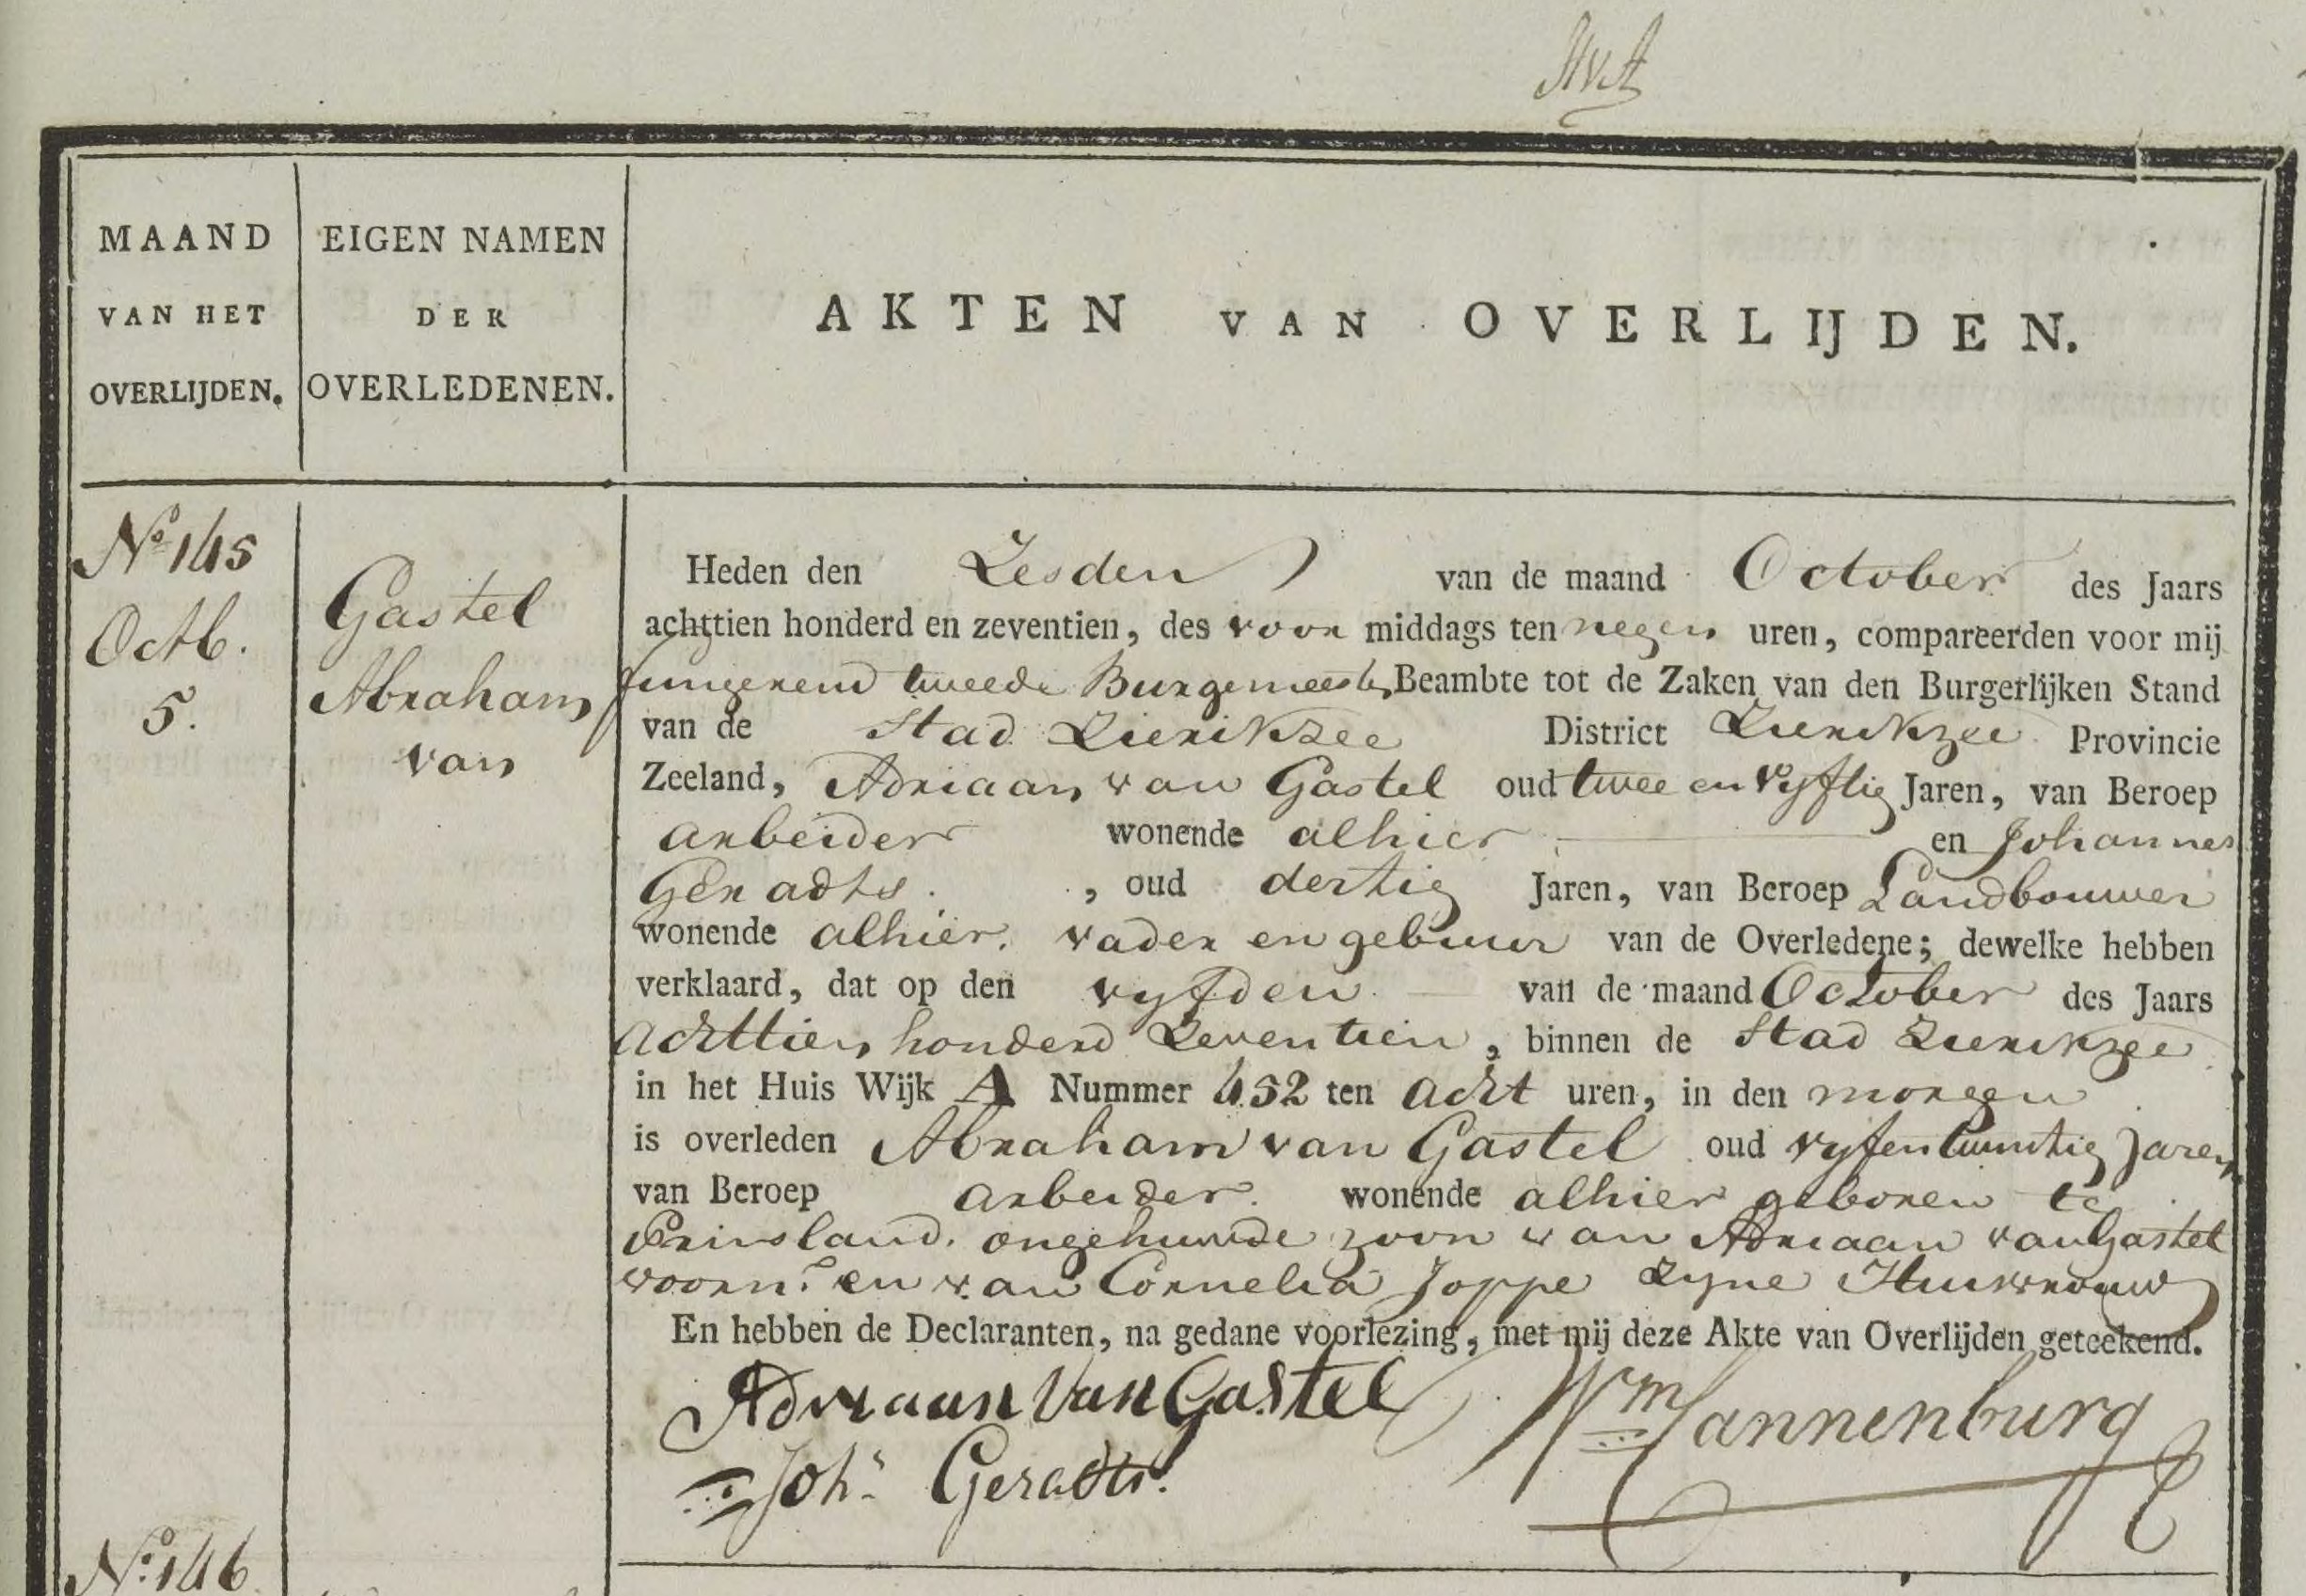 MAAND
VAN HET
OVERLIJDEN.
EIGEN NAMEN
DER
OVERLEDENEN.
AKTEN VAN OVERLIJDEN.
No 145
Octb.
5.
Gastel
Abraham
van
Heden den Zesden van de maand October des Jaars
achttien honderd en zeventien, des voor middags ten negen uren, compareerden voor mij
fungerend tweede Burgemeester, Beambte tot de Zaken van den Burgerlijken Stand
van de Stad Zierikzee District Zierikzee Provincie
Zeeland, Adriaan van Gastel oud twee en vyftig Jaren, van Beroep
arbeider wonende alhier en Johannes
Geradts. , oud dertig Jaren, van Beroep Landbouwer
wonende alhier. vader en gebuur van de Overledene; dewelke hebben
verklaard, dat op den vyfden van de maand October des Jaars
achttien honderd zeventien, binnen de Stad Zierikzee
in het Huis Wijk A Nummer 452 ten acht uren, in den morgen
is overleden Abraham van Gastel oud vyfentwintig Jaren
van Beroep arbeider. wonende alhier geboren te
Prinsland. ongehuwde zoon van Adriaan van Gastel
voorn.d en van Cornelia Joppe zyne Huisvrouw
En hebben de Declaranten, na gedane voorlezing, met mij deze Akte van Overlijden geteekend.
Adriaan Van Gastel
Wm Tannenburg
Johs Geradts.
No. 146